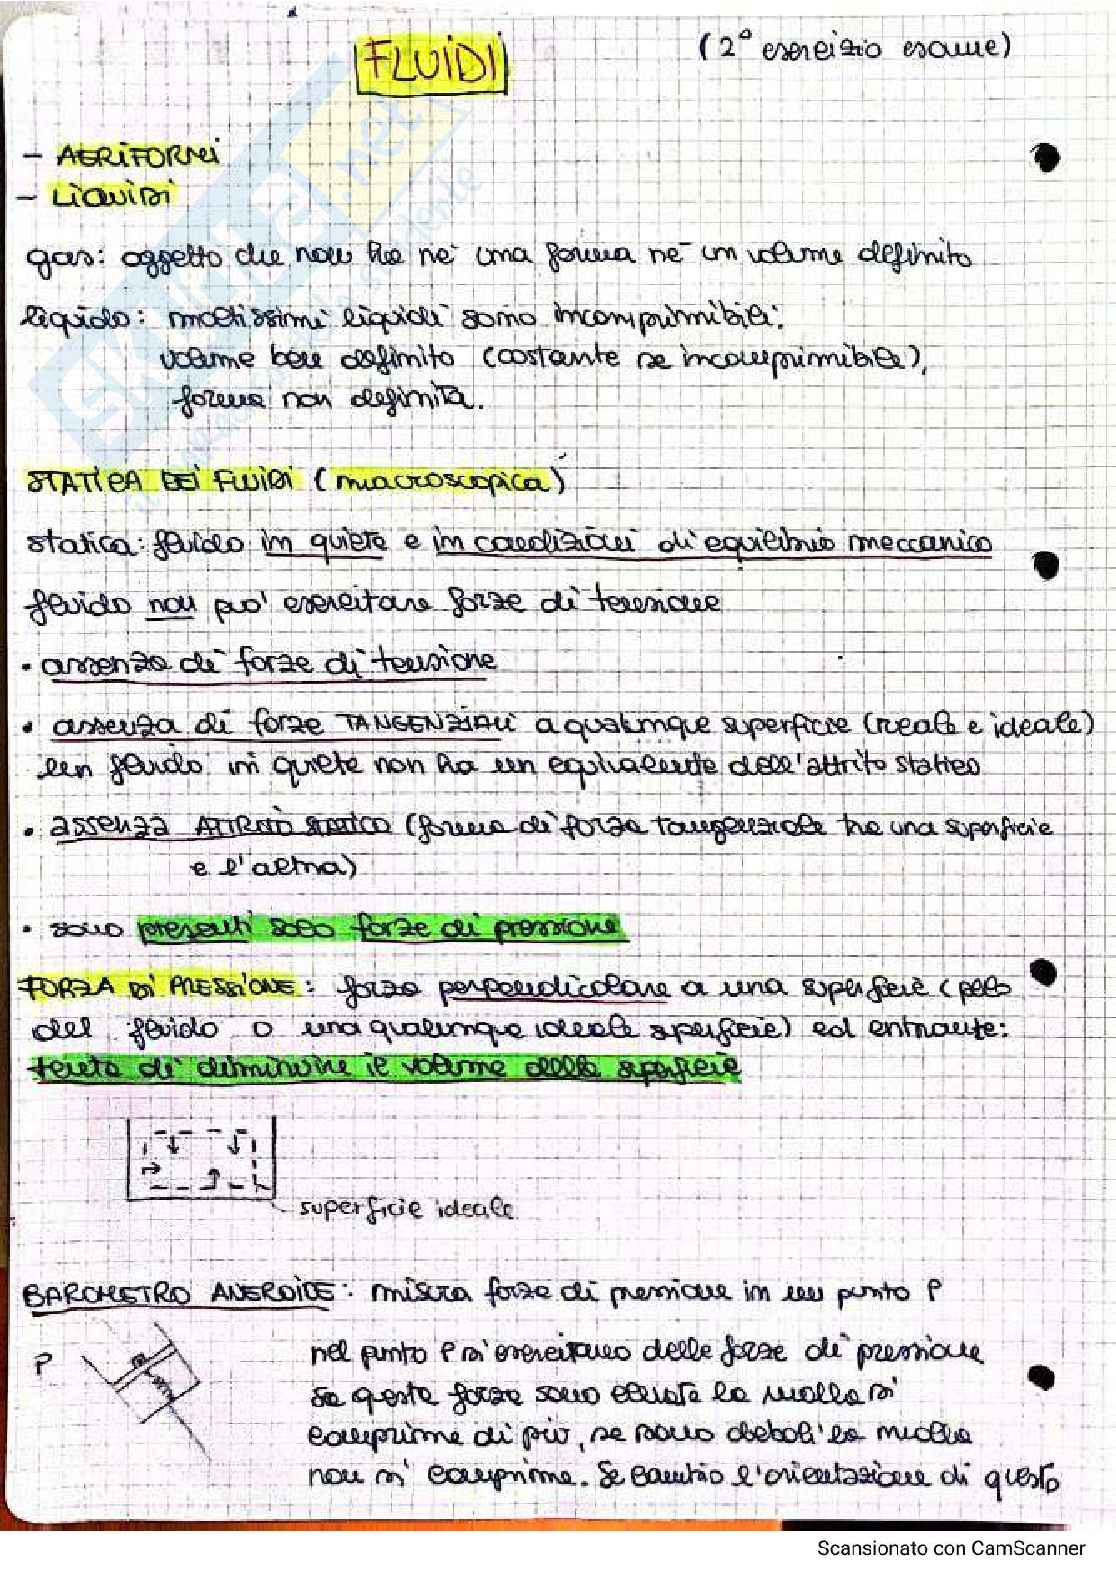 FLUIDI
(2° esercizio esame)
- AERIFORMI
- LIQUIDI
gas: oggetto che non ha nè una forma nè un volume definito
liquido: moltissimi liquidi sono incomprimibili:
volume ben definito (costante se incomprimibile),
forma non definita.
STATICA DEI FLUIDI (macroscopica)
statica: fluido in quiete e in condizioni di equilibrio meccanico
fluido non può esercitare forze di tensione
• assenza di forze di tensione
• assenza di forze TANGENZIALI a qualunque superficie (reale e ideale)
un fluido in quiete non ha un equivalente dell'attrito statico
• assenza ATTRITO STATICO (forma di forza tangenziale tra una superficie
e l'altra)
• sono presenti solo forze di pressione
FORZA DI PRESSIONE: forza perpendicolare a una superficie (pelo
del fluido o una qualunque ideale superficie) ed entrante:
tenta di diminuire il volume della superficie
superficie ideale
BAROMETRO ANEROIDE: misura forze di pressione in un punto P
P
nel punto P si esercitano delle forze di pressione
se queste forze sono elevate la molla si
comprime di più, se sono deboli la molla
non si comprime. Se cambio l'orientazione di questo
SKUOLA.net
Scansionato con CamScanner